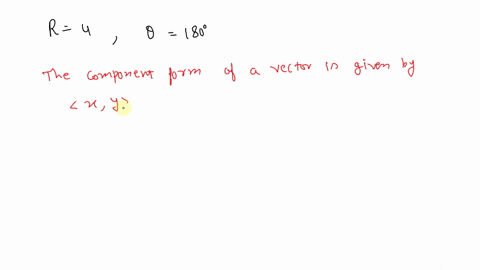 R = 4 , θ = 180°
The component form of a vector is given by
< x, y >